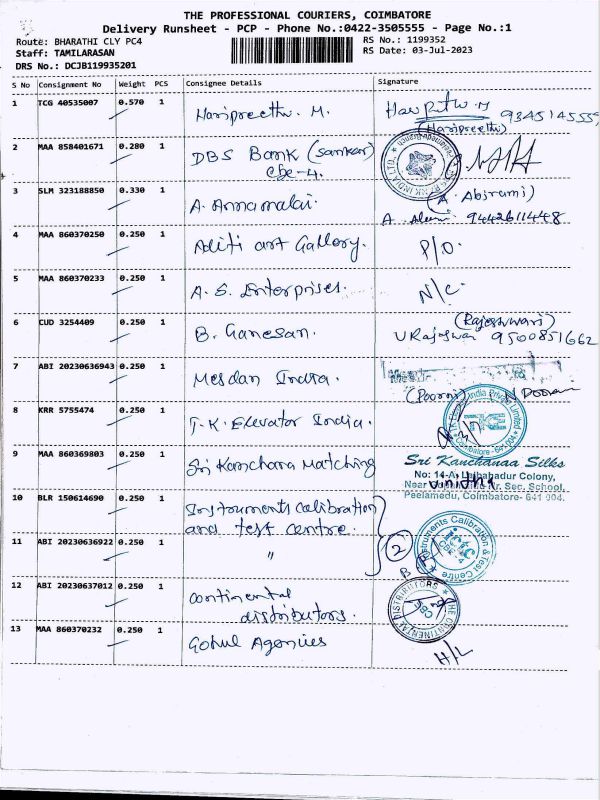 THE PROFESSIONAL COURIERS, COIMBATORE
Delivery Runsheet - PCP - Phone No.:0422-3505555 - Page No.:1
Route: BHARATHI CLY PC4
RS No.: 1199352
Staff: TAMILARASAN
RS Date: 03-Jul-2023
DRS No.: DCJB119935201
S No Consignment No Weight PCS Consignee Details Signature
1 TCG 40535007 0.570 1 Haripreethu. M.
(Haripreethi)
2 MAA 858401671 0.280 1 DBS Bank (Sankar)
Cbe-4.
3 SLM 323188850 0.330 1 A. Annamalai. (A. Abirami)
9442611448
4 MAA 860370250 0.250 1 Aditi art Gallery. P/O.
5 MAA 860370233 0.250 1 A. S. Enterprises. N/C.
6 CUD 3254409 0.250 1 B. Ganesan. (Rajeshwari)
9500851662
7 ABI 20230636943 0.250 1 Mesdan India.
(Poorni)
8 KRR 5755474 0.250 1 T.K. Elevator India.
TKE
9 MAA 860369803 0.250 1 Sri Kanchana Matching
Sri Kanchanaa Silks
No: 14-A, Lalbahadur Colony,
Sr. Sec. School,
Peelamedu, Coimbatore- 641 004.
10 BLR 150614690 0.250 1 Instruments Calibration
and test centre.
11 ABI 20230636922 0.250 1 " 2
Instruments Calibration & Test Centre
12 ABI 20230637012 0.250 1 continental
distributors.
THE CONTINENTAL DISTRIBUTORS
13 MAA 860370232 0.250 1 Gokul Agencies
H/L